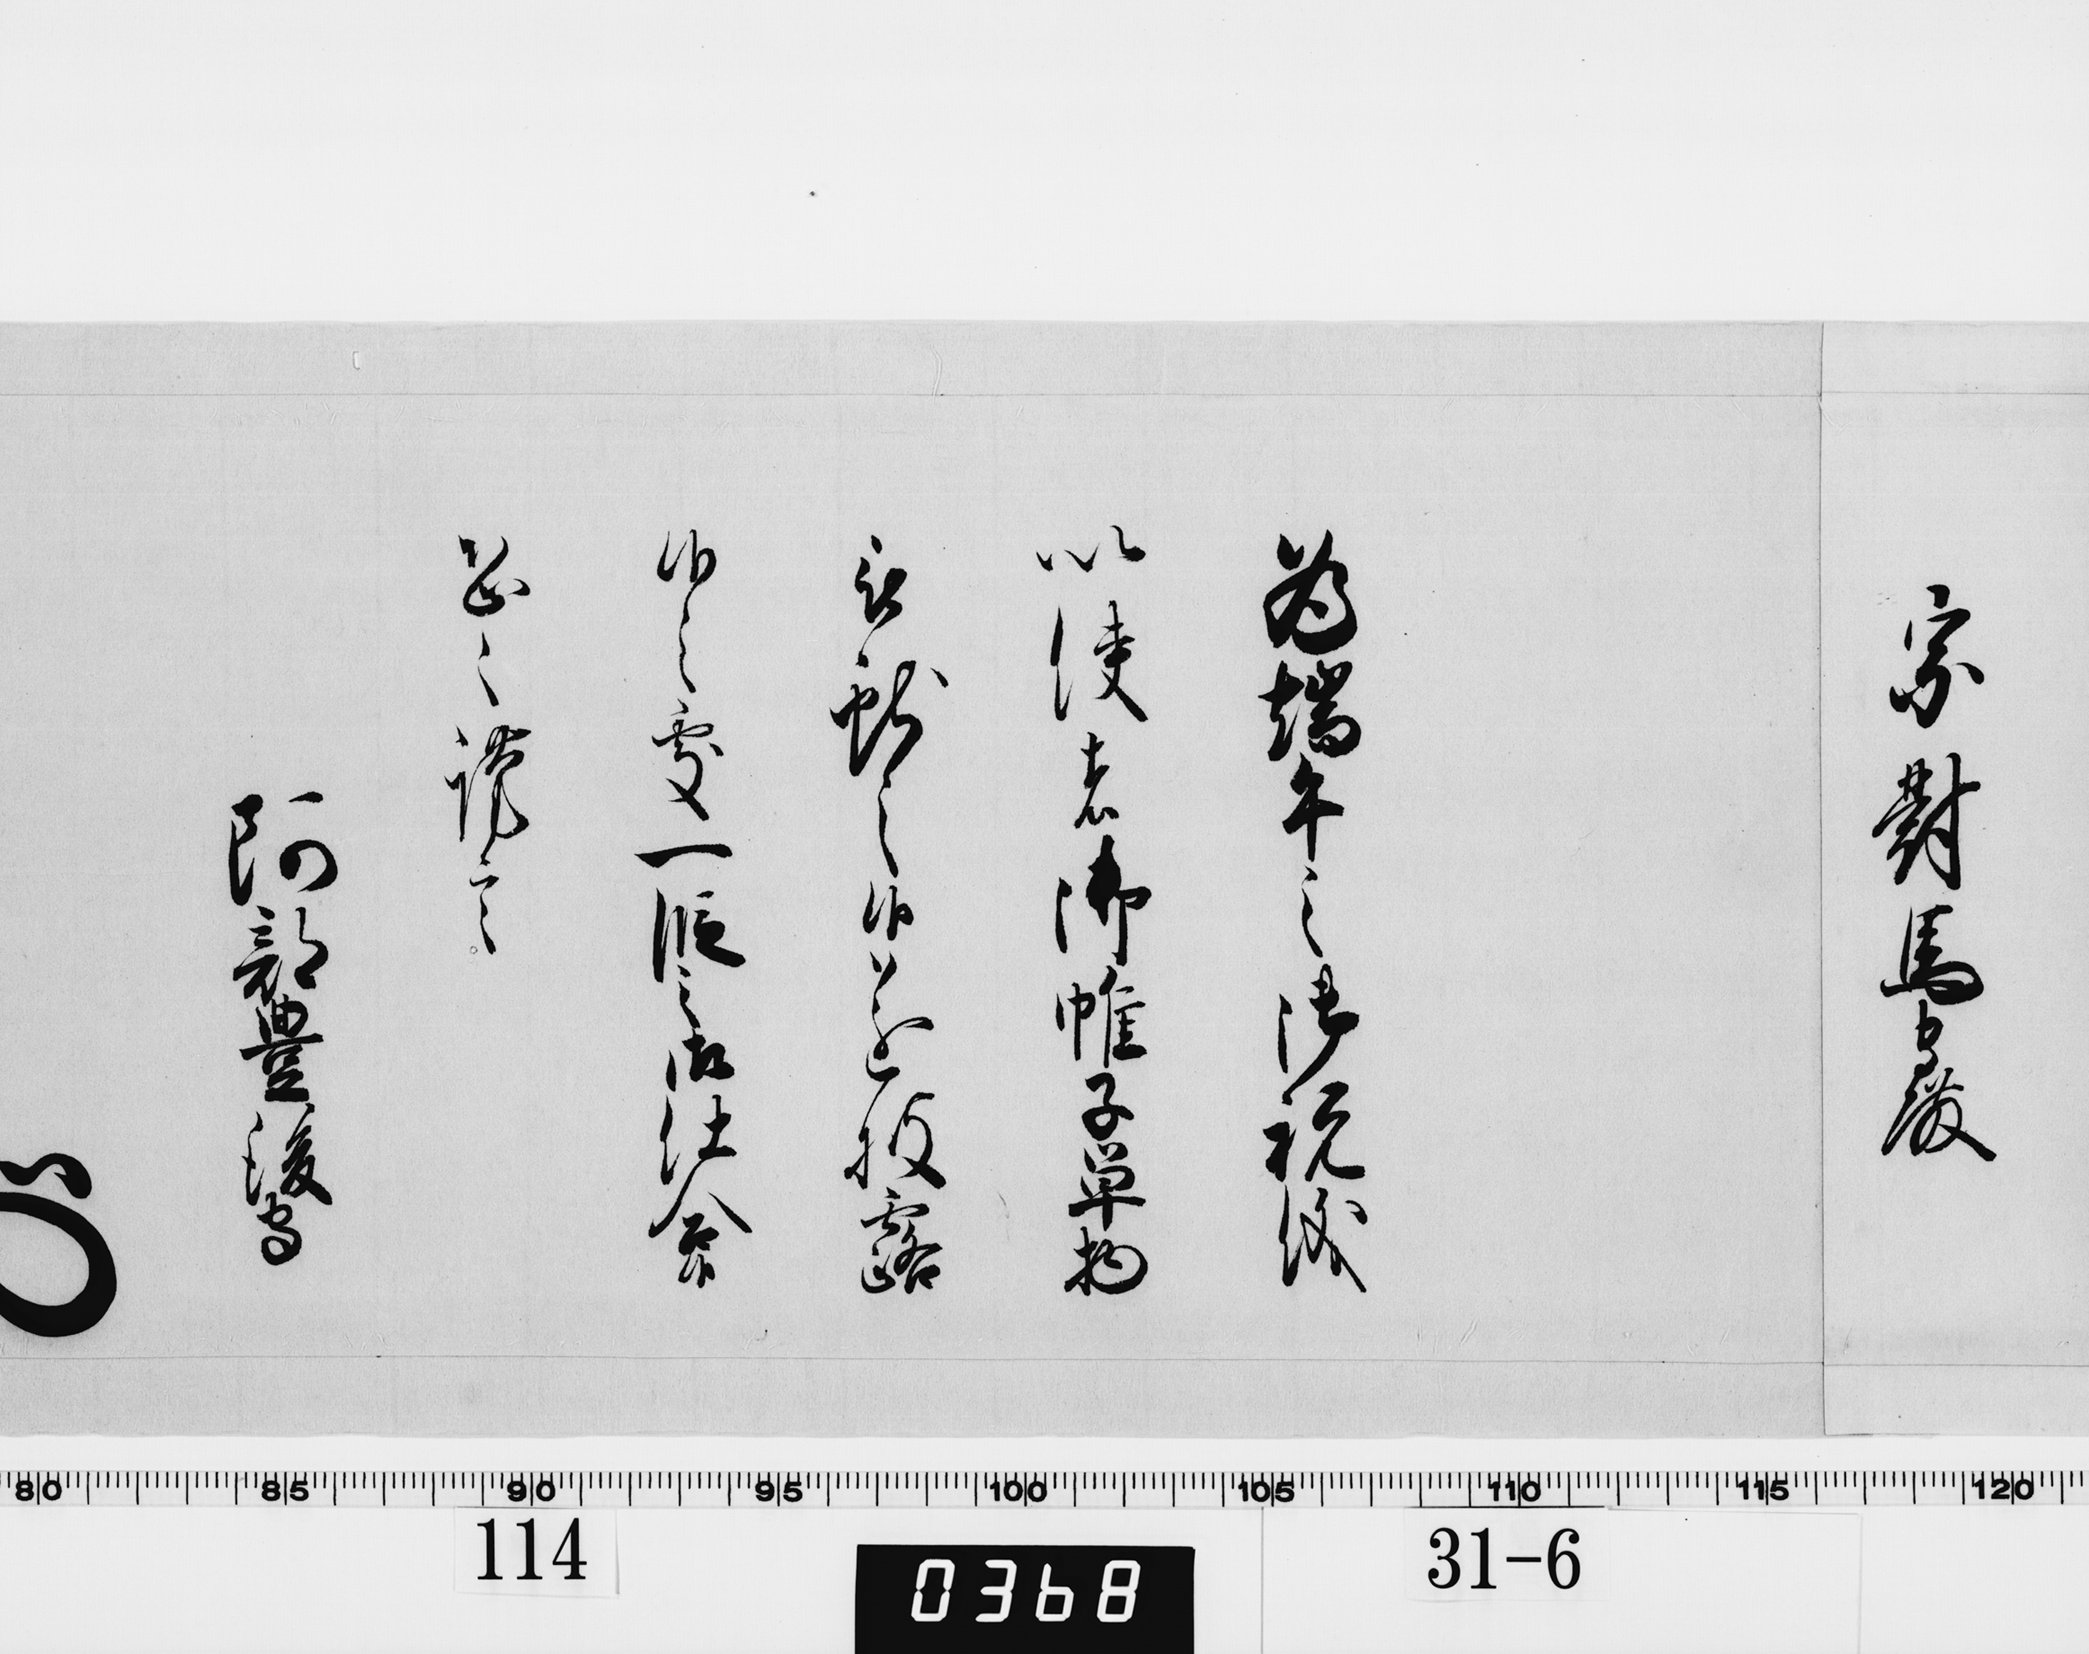 宗對馬守殿
為端午之御祝儀
以使者御帷子単物
被献之候遂披露
候之處一段之御仕合候
恐々謹言
阿部豊後守
80 85 90 95 100 105 110 115 120
114
0368
31-6